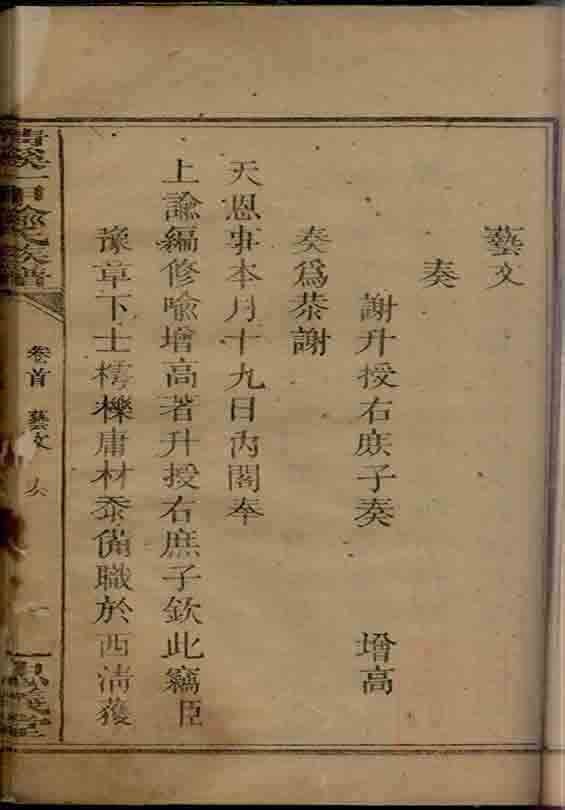 藝文
奏
謝升授右庶子奏 增高
奏為恭謝
天恩事本月十九日內閣奉
上諭編修喻增高著升授右庶子欽此竊臣
豫章下士樗櫟庸材忝備職於西清獲
卷首 藝文